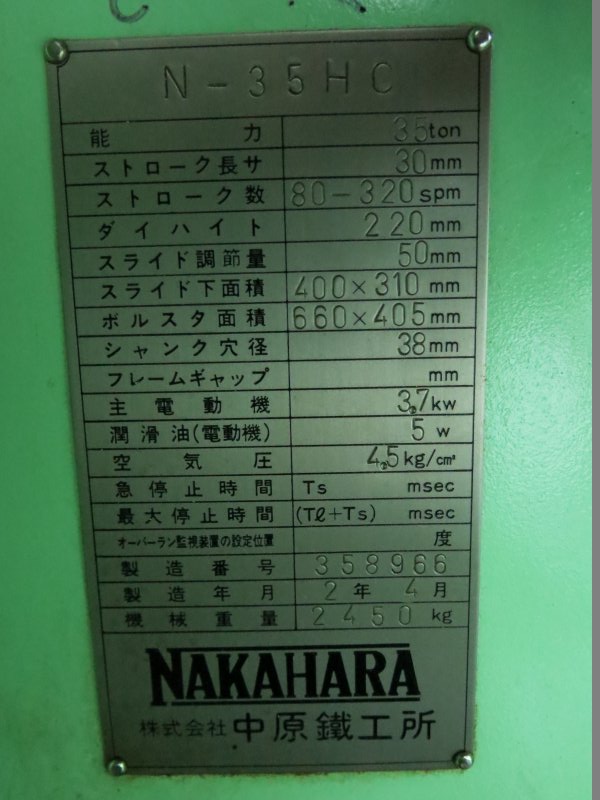 N-35HC
能力 35ton
ストローク長サ 30mm
ストローク数 80-320spm
ダイハイト 220mm
スライド調節量 50mm
スライド下面積 400×310mm
ボルスタ面積 660×405mm
シャンク穴径 38mm
フレームギャップ mm
主電動機 3.7kw
潤滑油(電動機) 5w
空気圧 4.5kg/cm²
急停止時間 Ts msec
最大停止時間 (Tℓ+Ts) msec
オーバーラン監視装置の設定位置 度
製造番号 358966
製造年月 2年 4月
機械重量 2450kg
NAKAHARA
株式会社 中原鐵工所